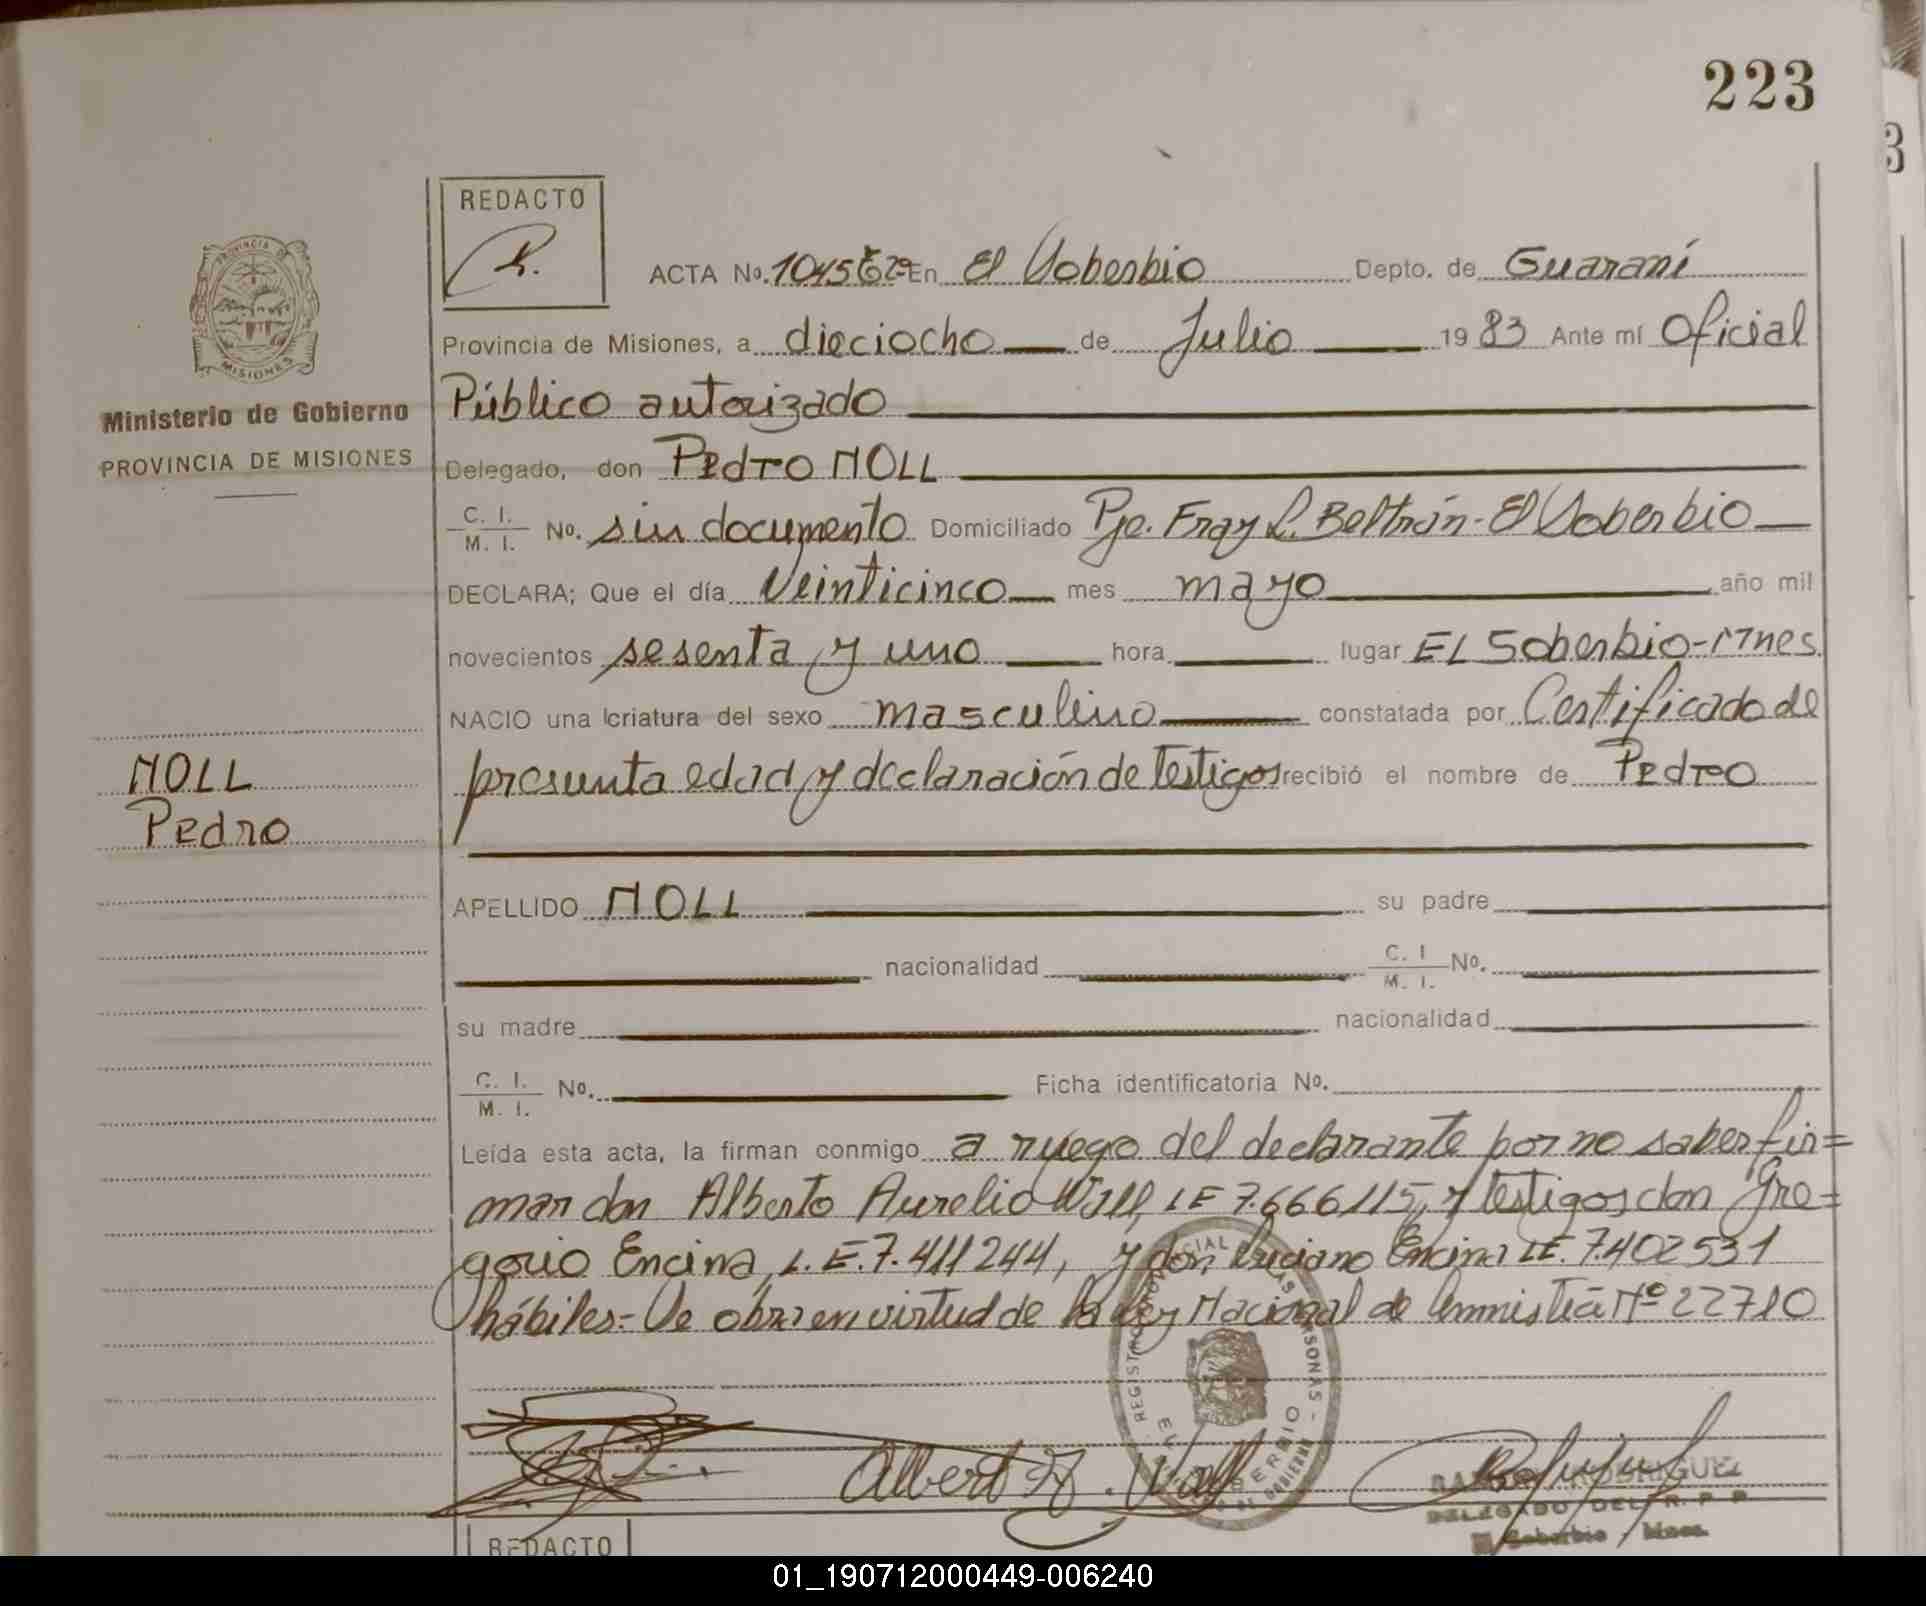 223
3
REDACTO
PROVINCIA DE
MISIONES
Ministerio de Gobierno
PROVINCIA DE MISIONES
ACTA No. En El Soberbio Depto. de Guaraní
Provincia de Misiones, a dieciocho de Julio 1983 Ante mí Oficial
Público autorizado
Delegado, don Pedro NOLL
C. I.
M. I. No. sin documento Domiciliado Pje. Fray L. Beltrán - El Soberbio
DECLARA; Que el día Veinticinco mes mayo año mil
novecientos sesenta y uno hora lugar EL Soberbio-Mnes
NACIO una criatura del sexo masculino constatada por Certificado de
presunta edad y declaración de Testigos recibió el nombre de Pedro
NOLL
Pedro
APELLIDO NOLL su padre
nacionalidad C. I
M. I. No.
su madre nacionalidad
C. I.
M. I. No. Ficha identificatoria No.
Leída esta acta, la firman conmigo a ruego del declarante por no saber fir=
mar don Alberto Aurelio Wall, LE 7.666115, y testigos don Gre=
gorio Encina, L.E. 7.411244, y don Luciano Encina LE. 7.402531
hábiles- Se obra en virtud de la ley Nacional de Amnistía Nº 22710
Albert A. Wall
RODRIGUEZ
DELEGADO DEL R. P. P.
El Soberbio - Mnes.
REDACTO
01_190712000449-006240